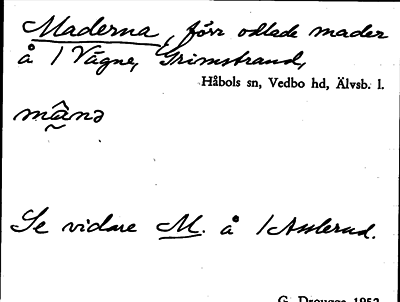 Maderna, förr odlade mader
å 1 Vågne, Grimstrand,
Håbols sn, Vedbo hd, Älvsb. l.
mânə
Se vidare M. å 1 Asslerud.
G. Drougge 1952